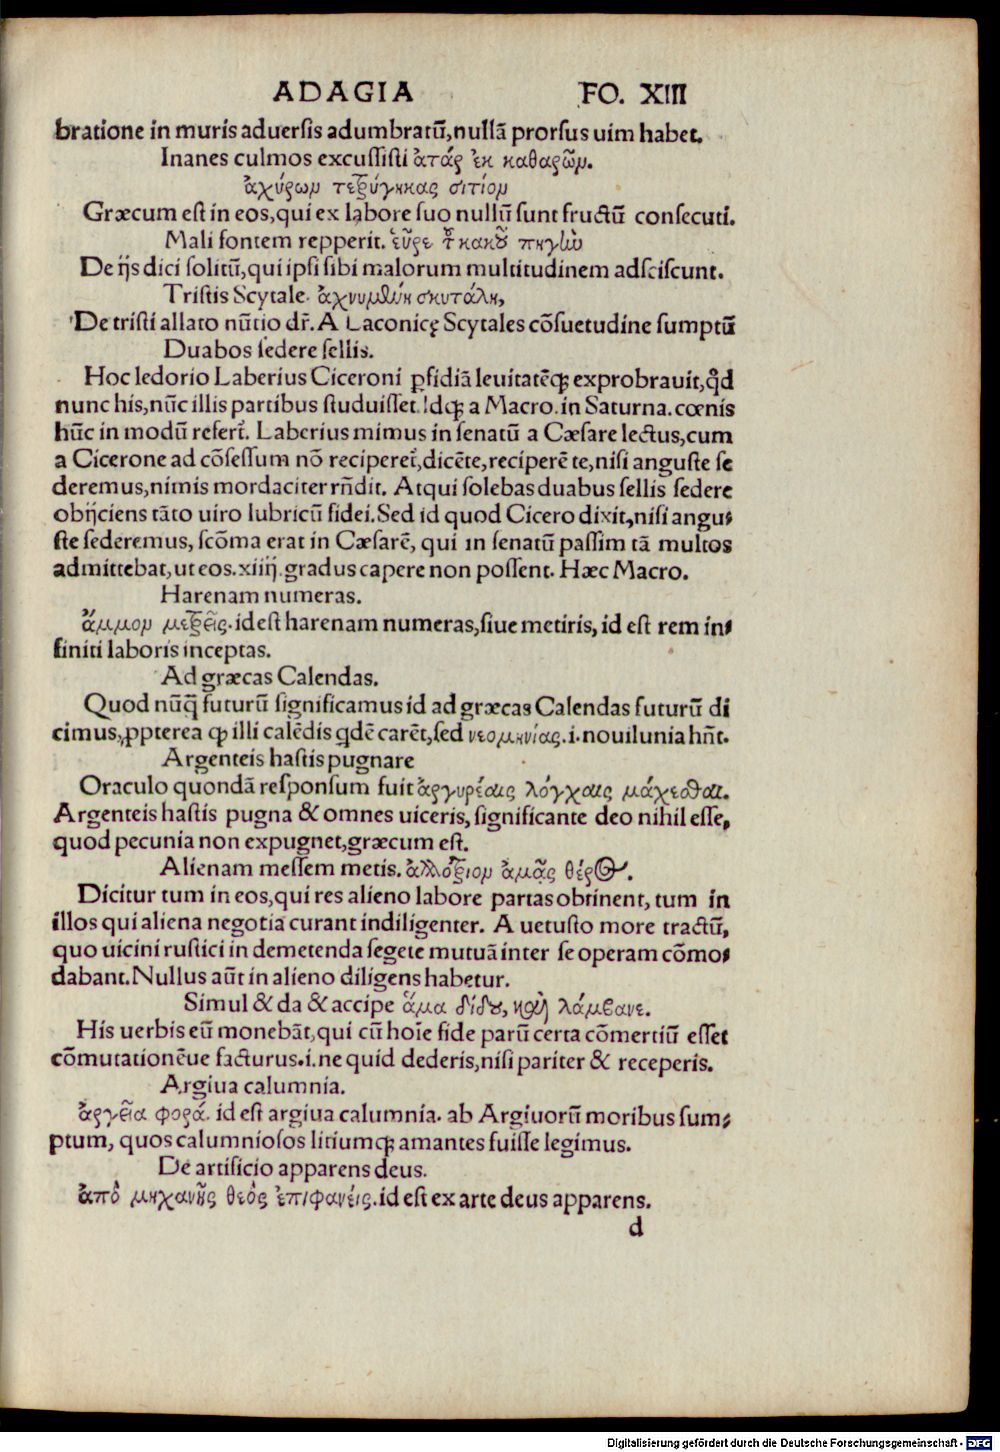 ADAGIA FO. XIII
bratione in muris aduersis adumbratū, nullā prorsus uim habet.
Inanes culmos excussisti ἀτάρ ἐκ καθαρῶν.
ἀχύρων τετρύγηκας σιτίον
Græcum est in eos, qui ex labore suo nullū sunt fructū consecuti.
Mali fontem repperit. εὗρε κακοῦ πηγὼ
De ijs dici solitū, qui ipsi sibi malorum multitudinem adsciscunt.
Tristis Scytale. ἀχνυμένη σκυτάλη,
De tristi allato nūtio dr̄. A Laconicę Scytales cōsuetudine sumptū
Duabos sedere sellis.
Hoc ledorio Laberius Ciceroni ꝑfidiā leuitatēq; exprobrauit, qd̓
nunc his, nūc illis partibus studuisset. Idq; a Macro. in Saturna. cœnis
hūc in modū refert̄. Laberius mimus in senatū a Cæsare lectus, cum
a Cicerone ad cōsessum nō reciperet̄, dicēte, reciperē te, nisi anguste se
deremus, nimis mordaciter rn̄dit. Atqui solebas duabus sellis sedere
obijciens tāto uiro lubricū fidei. Sed id quod Cicero dixit, nisi angu-
ste sederemus, scōma erat in Cæsarē, qui in senatū passim tā multos
admittebat, ut eos. xiiij. gradus capere non possent. Hæc Macro.
Harenam numeras.
ἄμμον μετρεῖς. id est harenam numeras, siue metiris, id est rem in-
finiti laboris inceptas.
Ad græcas Calendas.
Quod nūq̄ futurū significamus id ad græcas Calendas futurū di
cimus, ꝓpterea ꝙ illi calēdis qdē carēt, sed νεομηνίας. i. nouilunia hn̄t.
Argenteis hastis pugnare
Oraculo quondā responsum fuit ἀργυρέαις λόγχαις μάχεσθαι.
Argenteis hastis pugna & omnes uiceris, significante deo nihil esse,
quod pecunia non expugnet, græcum est.
Alienam messem metis. ἀλλότριον ἀμᾷς θέρος.
Dicitur tum in eos, qui res alieno labore partas obtinent, tum in
illos qui aliena negotia curant indiligenter. A uetusto more tractū,
quo uicini rustici in demetenda segete mutuā inter se operam cōmo-
dabant. Nullus aūt in alieno diligens habetur.
Simul & da & accipe ἅμα δίδου, καὶ λάμβανε.
His uerbis eū monebāt, qui cū hoīe fide parū certa cōmertiū esset
cōmutationēue facturus. i. ne quid dederis, nisi pariter & receperis.
Argiua calumnia.
ἀργεῖα φορά. id est argiua calumnia. ab Argiuorū moribus sum-
ptum, quos calumniosos litiumq; amantes fuisse legimus.
De artificio apparens deus.
ἀπὸ μηχανῆς θεὸς ἐπιφανείς. id est ex arte deus apparens.
d
Digitalisierung gefördert durch die Deutsche Forschungsgemeinschaft - DFG